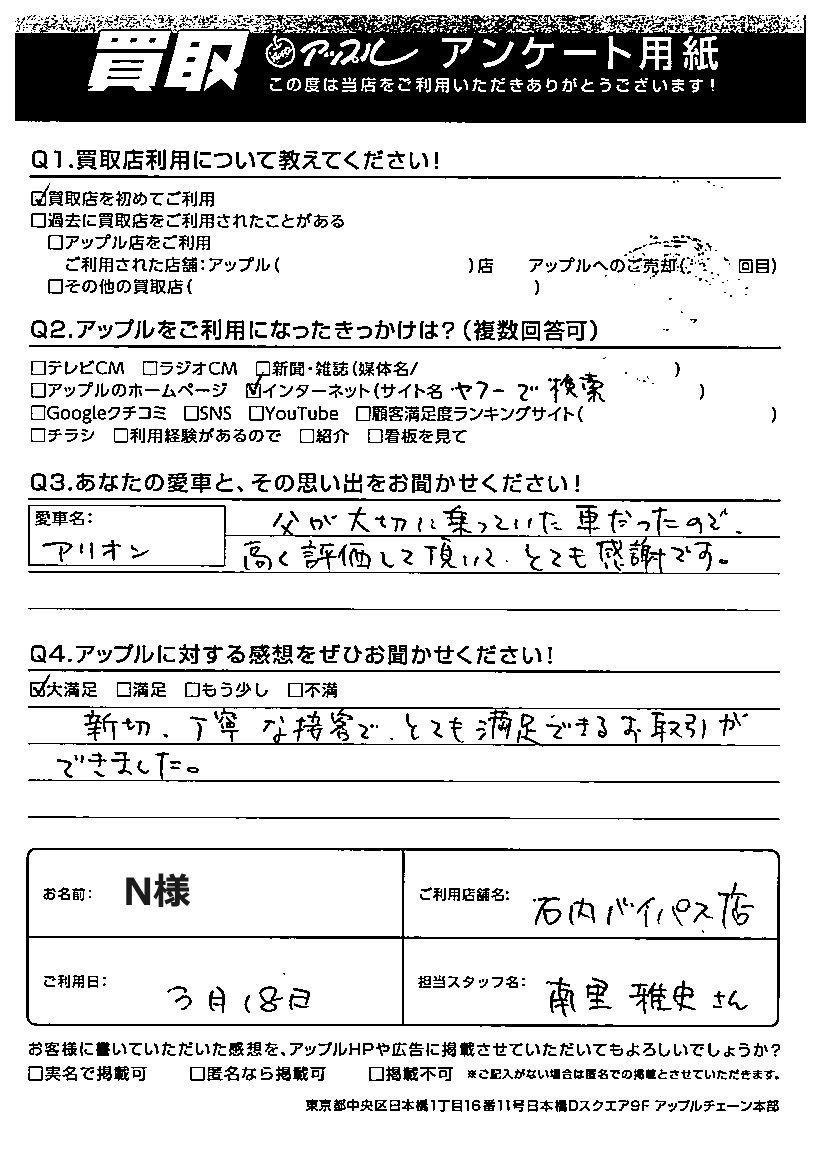 買取 アップル アンケート用紙
この度は当店をご利用いただきありがとうございます!
Q1.買取店利用について教えてください!
☑買取店を初めてご利用
□過去に買取店をご利用されたことがある
□アップル店をご利用
ご利用された店舗:アップル( )店 アップルへのご売却( 回目)
□その他の買取店( )
Q2.アップルをご利用になったきっかけは?(複数回答可)
□テレビCM □ラジオCM □新聞・雑誌(媒体名/ )
□アップルのホームページ ☑インターネット(サイト名 ヤフーで検索 )
□Googleクチコミ □SNS □YouTube □顧客満足度ランキングサイト( )
□チラシ □利用経験があるので □紹介 □看板を見て
Q3.あなたの愛車と、その思い出をお聞かせください!
愛車名:
アリオン
父が大切に乗っていた車だったので、
高く評価して頂いて、とても感謝です。
Q4.アップルに対する感想をぜひお聞かせください!
☑大満足 □満足 □もう少し □不満
新切、丁寧な接客で、とても満足できるお取引が
できました。
お名前: N様 ご利用店舗名: 石内バイパス店
ご利用日: 3月18日 担当スタッフ名: 南里 雅史さん
お客様に書いていただいた感想を、アップルHPや広告に掲載させていただいてもよろしいでしょうか?
□実名で掲載可 □匿名なら掲載可 □掲載不可 ※ご記入がない場合は匿名での掲載とさせていただきます。
東京都中央区日本橋1丁目16番11号日本橋Dスクエア9F アップルチェーン本部